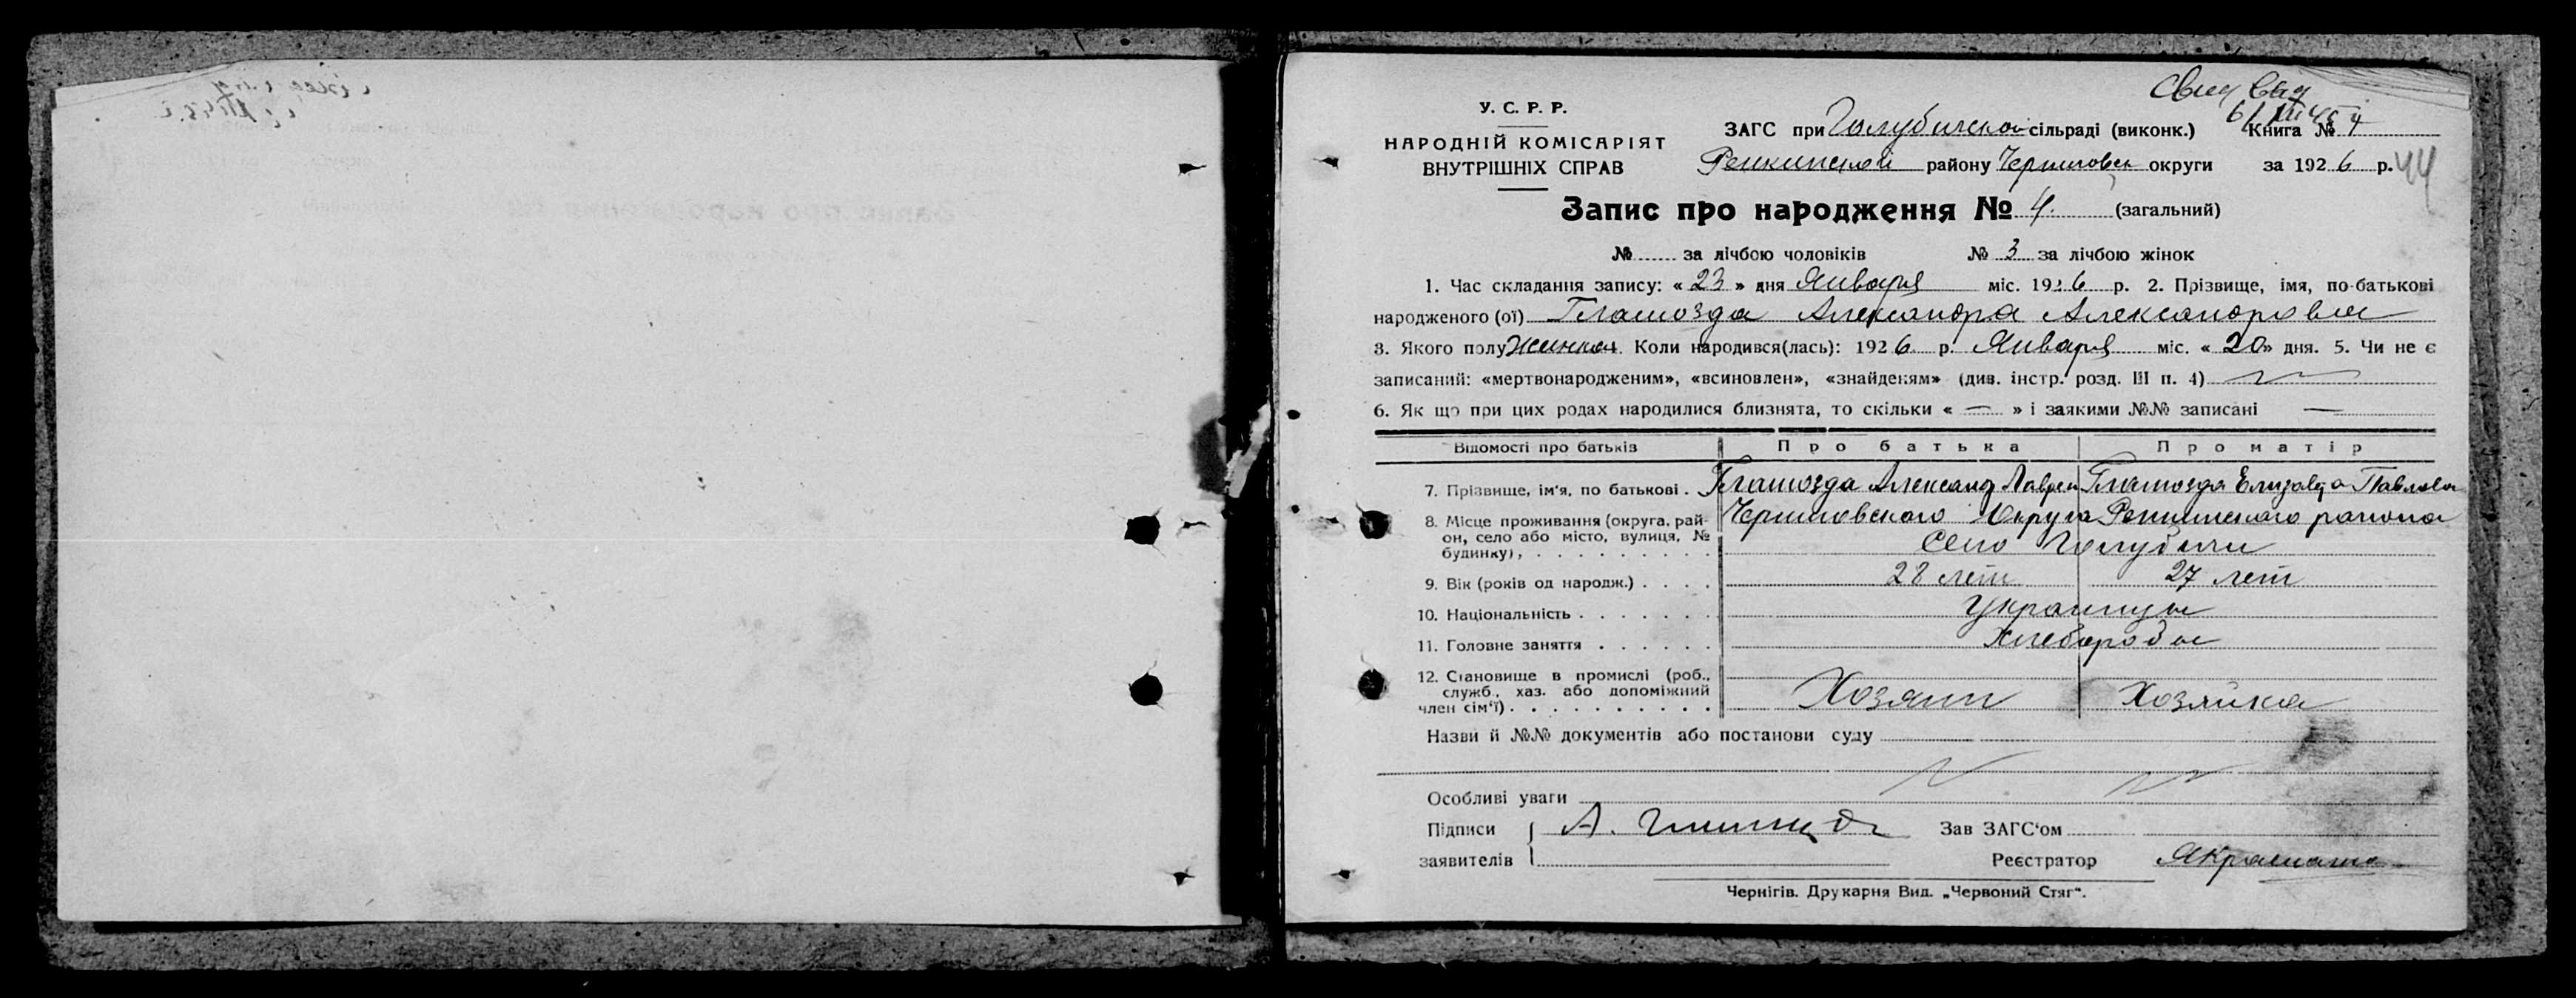 Свид выд
У. С. Р. Р.
НАРОДНІЙ КОМІСАРІЯТ
ВНУТРІШНІХ СПРАВ
ЗАГС при Голубичской сільраді (виконк.) Книга № 4
Репкинской району Черниговск округи за 1926 р. 44
Запис про народження № 4. (загальний)
№ за лічбою чоловіків № 3 за лічбою жінок
1. Час складання запису: « 23 » дня Января міс. 1926 р. 2. Прізвище, імя, по-батькові
народженого (ої) Александра Александровна
3. Якого полу Коли народився(лась): 1926 р. Января міс. « 20 » дня. 5. Чи не є
записаний: «мертвонародженим», «всиновлен», «знайденям» (див. інстр. розд. III п. 4)
6. Як що при цих родах народилися близнята, то скільки « — » і заякими №№ записані —
Відомості про батьків Про батька Про матір
7. Прізвище, ім'я, по батькові . Александ Лаврен Елизавета Павлова
8. Місце проживання (округа, рай- Черниговского Округа Репкинского района
он, село або місто, вулиця, №
будинку), Село Голубичи
9. Вік (років од народж.) 28 лет 27 лет
10. Національність Украинцы
11. Головне заняття Хлеборобы
12. Становище в промислі (роб.,
служб., хаз. або допоміжний
член сім'ї) Хозяин Хозяйка
Назви й №№ документів або постанови суду
Особливі уваги
Підписи А. Зав ЗАГС'ом
заявителів Реєстратор
Чернігів. Друкарня Вид. „Червоний Стяг“.